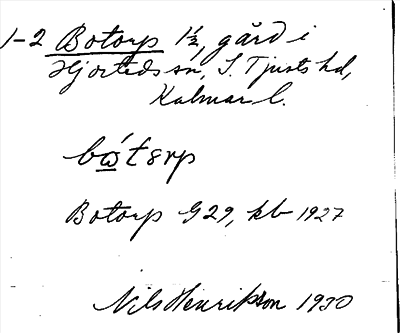 1-2 Botorp 1½, gård i
Hjorteds sn, S. Tjusts hd,
Kalmar l.
bώ̲tərp
Botorp G29, kb 1927
Nils Henrikson 1930